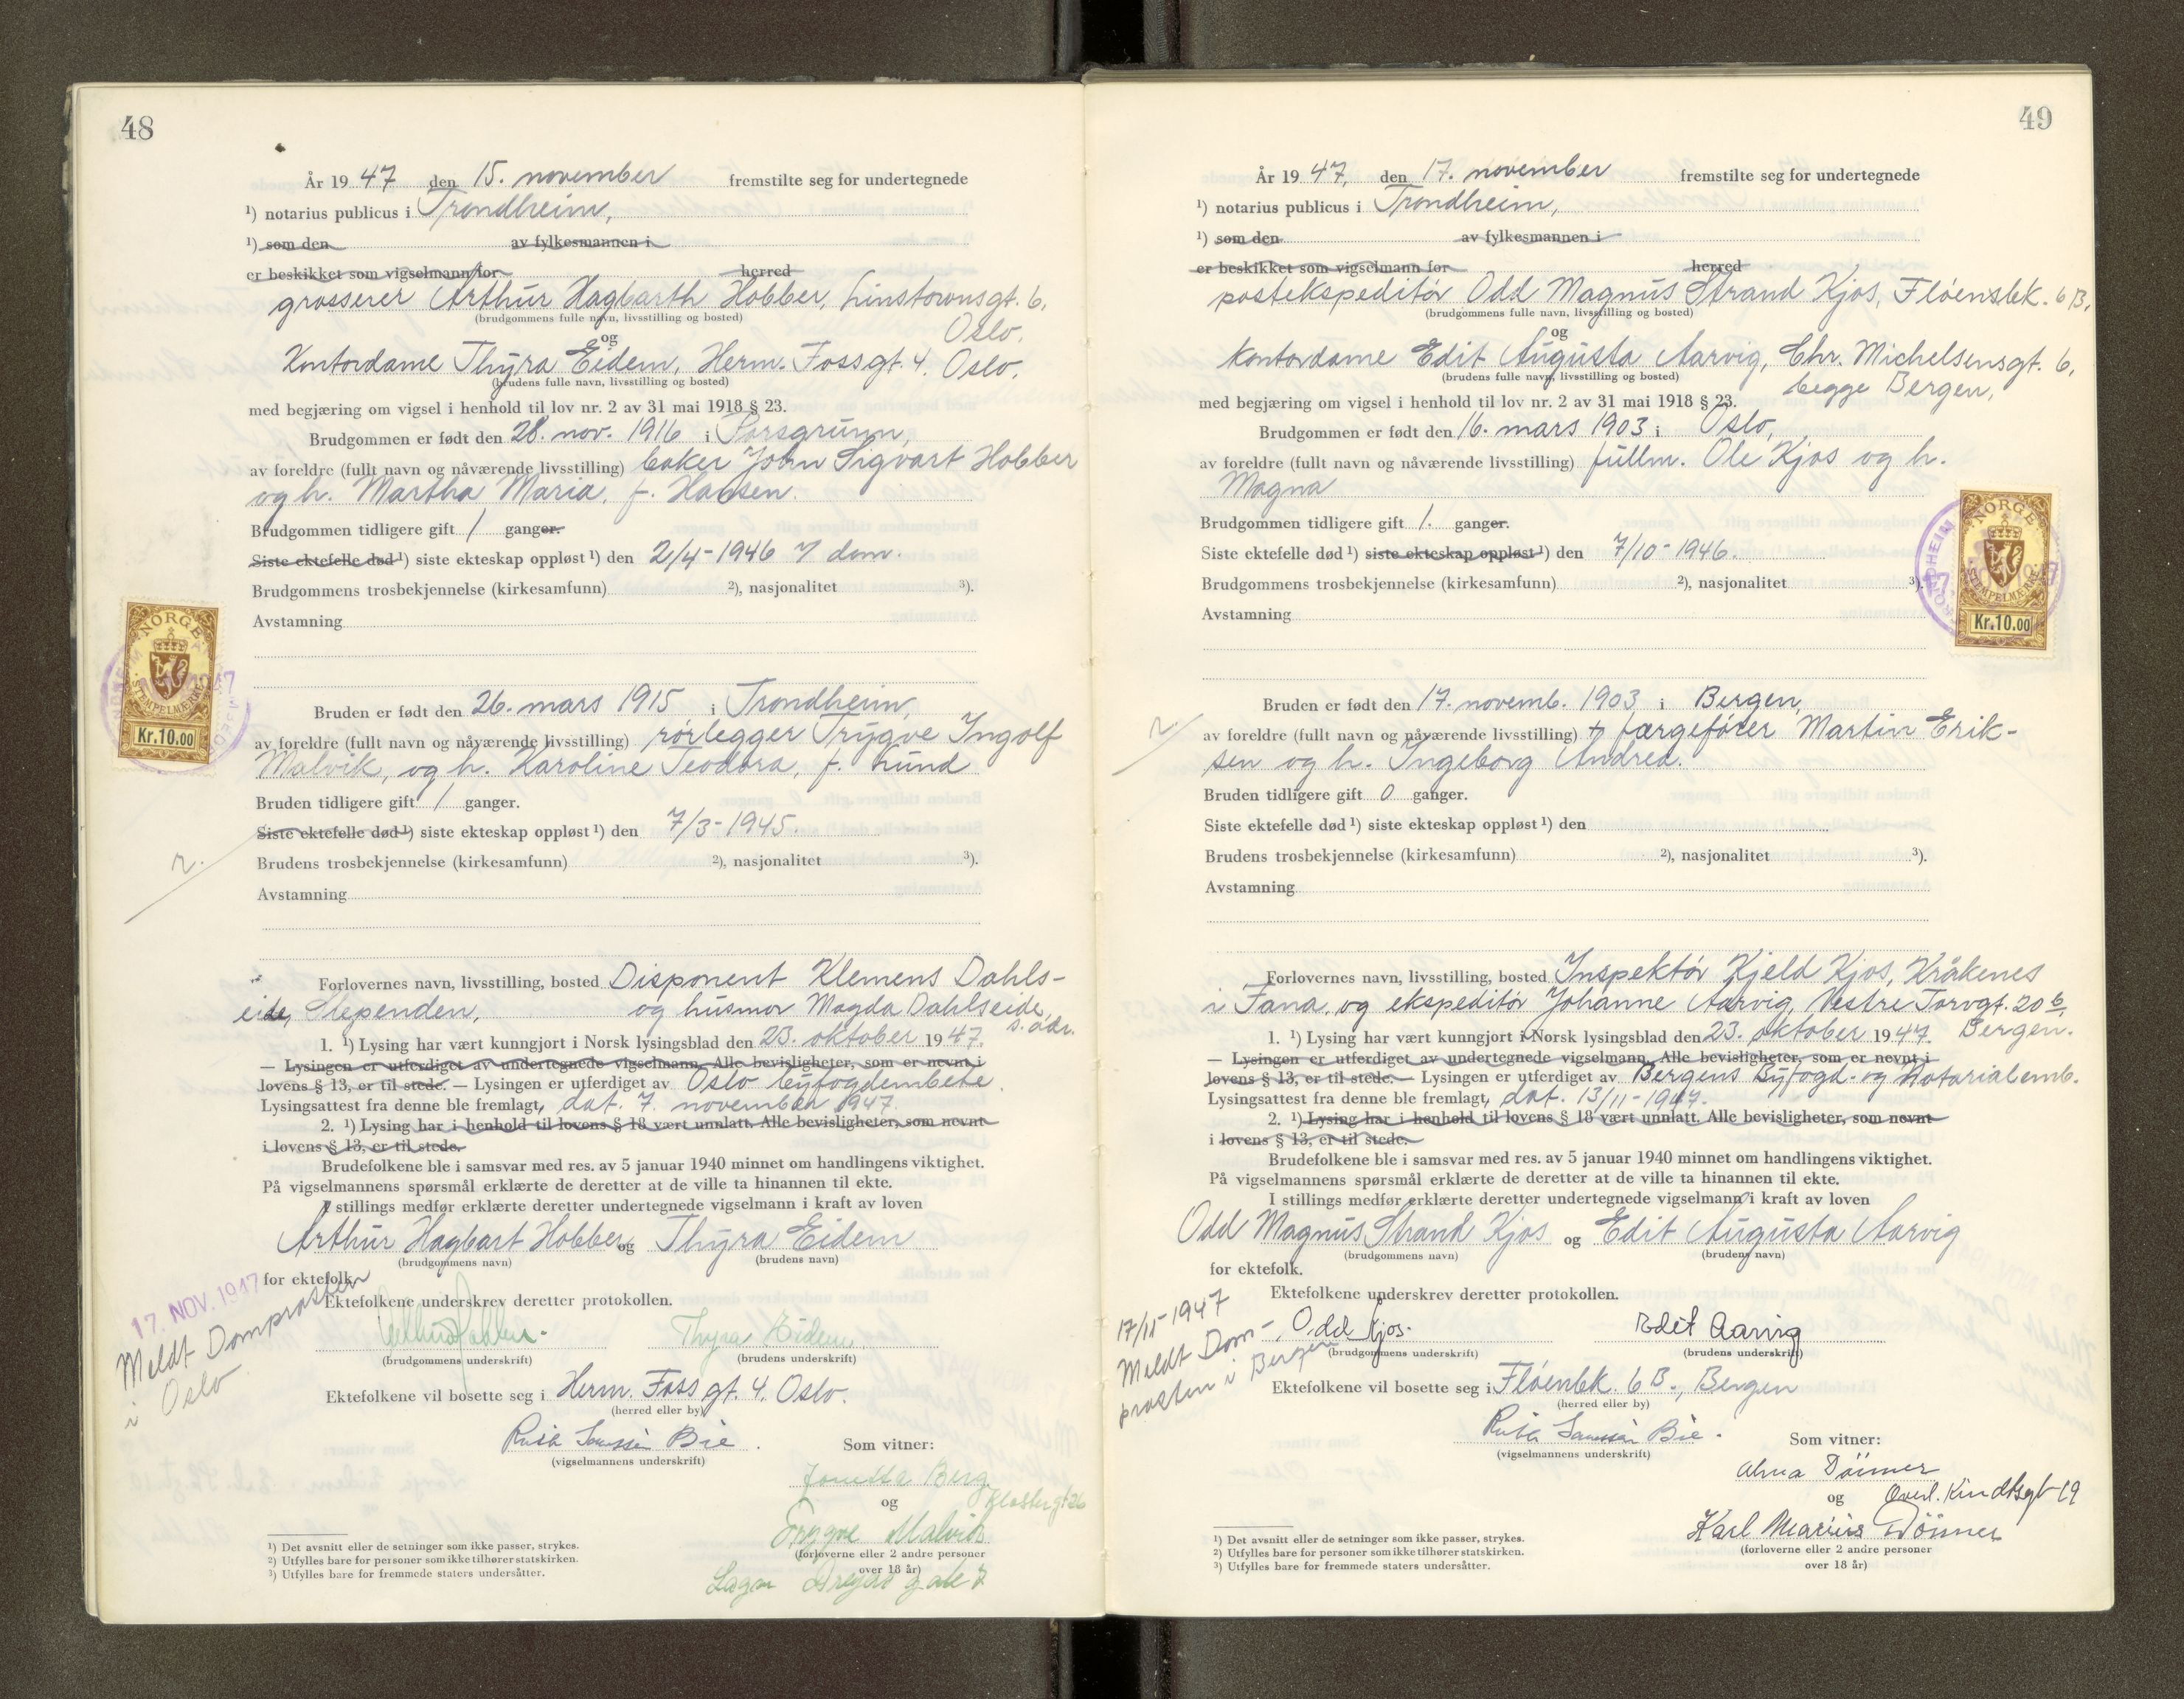 48
År 1947 den 15. november fremstilte seg for undertegnede
¹) notarius publicus i Trondheim,
¹) som den av fylkesmannen i
er beskikket som vigselmann for herred
grosserer Arthur Hagbarth Hobber, Linstowsgt. 6,
(brudgommens fulle navn, livsstilling og bosted)
Oslo.
og
Kontordame Thyra Eidem, Herm. Fossgt. 4. Oslo.
(brudens fulle navn, livsstilling og bosted)
med begjæring om vigsel i henhold til lov nr. 2 av 31 mai 1918 § 23.
Brudgommen er født den 28. nov. 1916 i Porsgrunn,
av foreldre (fullt navn og nåværende livsstilling) baker John Sigvart Hobber
og h. Martha Maria, f. Hansen.
Brudgommen tidligere gift 1 ganger.
Siste ektefelle død¹) siste ekteskap oppløst¹) den 2/4-1946 dom.
Brudgommens trosbekjennelse (kirkesamfunn) ²), nasjonalitet ³).
Avstamning
NORGE
STEMPELMERKE
Kr.10.00
Bruden er født den 26. mars 1915 i Trondheim,
av foreldre (fullt navn og nåværende livsstilling) rørlegger Trygve Ingolf
Malvik, og h. Karoline Teodora, f. Lund
Bruden tidligere gift 1 ganger.
Siste ektefelle død¹) siste ekteskap oppløst¹) den 7/3-1945.
r.
Brudens trosbekjennelse (kirkesamfunn) ²), nasjonalitet ³).
Avstamning
Forlovernes navn, livsstilling, bosted Disponent Klemens Dahls-
eide, Slependen, og husmor Magda Dahlseide,
s. adr.
1. ¹) Lysing har vært kunngjort i Norsk lysingsblad den 23. oktober 1947.
— Lysingen er utferdiget av undertegnede vigselmann. Alle bevisligheter, som er nevnt i
lovens § 13, er til stede. — Lysingen er utferdiget av Oslo byfogdembete.
Lysingsattest fra denne ble fremlagt, dat. 7. november 1947.
2. ¹) Lysing har i henhold til lovens § 18 vært unnlatt. Alle bevisligheter, som nevnt
i lovens § 13, er til stede.
Brudefolkene ble i samsvar med res. av 5 januar 1940 minnet om handlingens viktighet.
På vigselmannens spørsmål erklærte de deretter at de ville ta hinannen til ekte.
I stillings medfør erklærte deretter undertegnede vigselmann i kraft av loven
Arthur Hagbart Hobber og Thyra Eidem
(brudgommens navn) (brudens navn)
for ektefolk.
17. NOV. 1947
Meldt Domprosten
i Oslo
Ektefolkene underskrev deretter protokollen.
Thyra Eidem
(brudgommens underskrift) (brudens underskrift)
Ektefolkene vil bosette seg i Herm. Foss gt. 4. Oslo.
(herred eller by)
Ruth Bie.
(vigselmannens underskrift)
Som vitner:
Berg
og Klostergt 26
Trygve Malvik
(forloverne eller 2 andre personer
over 18 år)
¹) Det avsnitt eller de setninger som ikke passer, strykes.
²) Utfylles bare for personer som ikke tilhører statskirken.
³) Utfylles bare for fremmede staters undersåtter.
49
År 1947, den 17. november fremstilte seg for undertegnede
¹) notarius publicus i Trondheim,
¹) som den av fylkesmannen i
er beskikket som vigselmann for herred
postekspeditør Odd Magnus Strand Kjos, Fløenbk. 6 B,
(brudgommens fulle navn, livsstilling og bosted)
og
kontordame Edit Augusta Aarvig, Chr. Michelsensgt. 6,
(brudens fulle navn, livsstilling og bosted)
begge Bergen,
med begjæring om vigsel i henhold til lov nr. 2 av 31 mai 1918 § 23.
Brudgommen er født den 16. mars 1903 i Oslo,
av foreldre (fullt navn og nåværende livsstilling) fullm. Ole Kjos og h.
Magna
Brudgommen tidligere gift 1. ganger.
Siste ektefelle død¹) siste ekteskap oppløst¹) den 7/10-1946.
Brudgommens trosbekjennelse (kirkesamfunn) ²), nasjonalitet ³).
Avstamning
NORGE
STEMPELMERKE
Kr.10.00
Bruden er født den 17. novemb. 1903 i Bergen,
r.
av foreldre (fullt navn og nåværende livsstilling) + færgefører Martin Erik-
sen og h. Ingeborg Andrea.
Bruden tidligere gift 0 ganger.
Siste ektefelle død¹) siste ekteskap oppløst¹) den
Brudens trosbekjennelse (kirkesamfunn) ²), nasjonalitet ³).
Avstamning
Forlovernes navn, livsstilling, bosted Inspektør Kjeld Kjos, Kråkenes
i Fana, og ekspeditør Johanne Aarvig, Vestre Torvgt. 20 b,
Bergen.
1. ¹) Lysing har vært kunngjort i Norsk lysingsblad den 23. oktober 1947.
— Lysingen er utferdiget av undertegnede vigselmann. Alle bevisligheter, som er nevnt i
lovens § 13, er til stede. — Lysingen er utferdiget av Bergens Byfogd- og Notarialemb.
Lysingsattest fra denne ble fremlagt, dat. 13/11-1947.
2. ¹) Lysing har i henhold til lovens § 18 vært unnlatt. Alle bevisligheter, som nevnt
i lovens § 13, er til stede.
Brudefolkene ble i samsvar med res. av 5 januar 1940 minnet om handlingens viktighet.
På vigselmannens spørsmål erklærte de deretter at de ville ta hinannen til ekte.
I stillings medfør erklærte deretter undertegnede vigselmann i kraft av loven
Odd Magnus Strand Kjos og Edit Augusta Aarvig
(brudgommens navn) (brudens navn)
for ektefolk.
17/11-1947
Meldt Dom-
prosten i Bergen
Ektefolkene underskrev deretter protokollen.
Odd Kjos. Edit Aarvig
(brudgommens underskrift) (brudens underskrift)
Ektefolkene vil bosette seg i Fløenbk. 6 B., Bergen
(herred eller by)
Ruth Bie.
(vigselmannens underskrift)
Som vitner:
Alma Döimer
og Overl. Kindtsgt 19
Karl Marius Döimer
(forloverne eller 2 andre personer
over 18 år)
¹) Det avsnitt eller de setninger som ikke passer, strykes.
²) Utfylles bare for personer som ikke tilhører statskirken.
³) Utfylles bare for fremmede staters undersåtter.